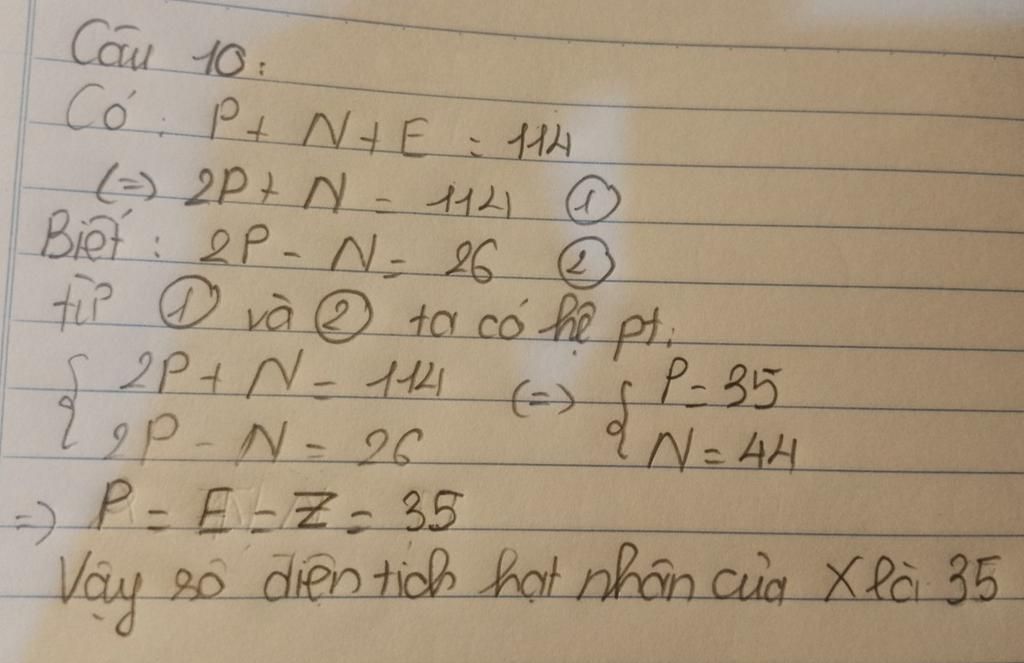 Câu 10:
Có: P + N + E = 114
(=) 2P + N = 114 ①
Biết: 2P - N = 26 ②
từ ① và ② ta có hệ pt:
{ 2P + N = 114 (=) { P = 35
2P - N = 26 N = 44
=) P = E = Z = 35
Vậy số điện tích hạt nhân của X là 35